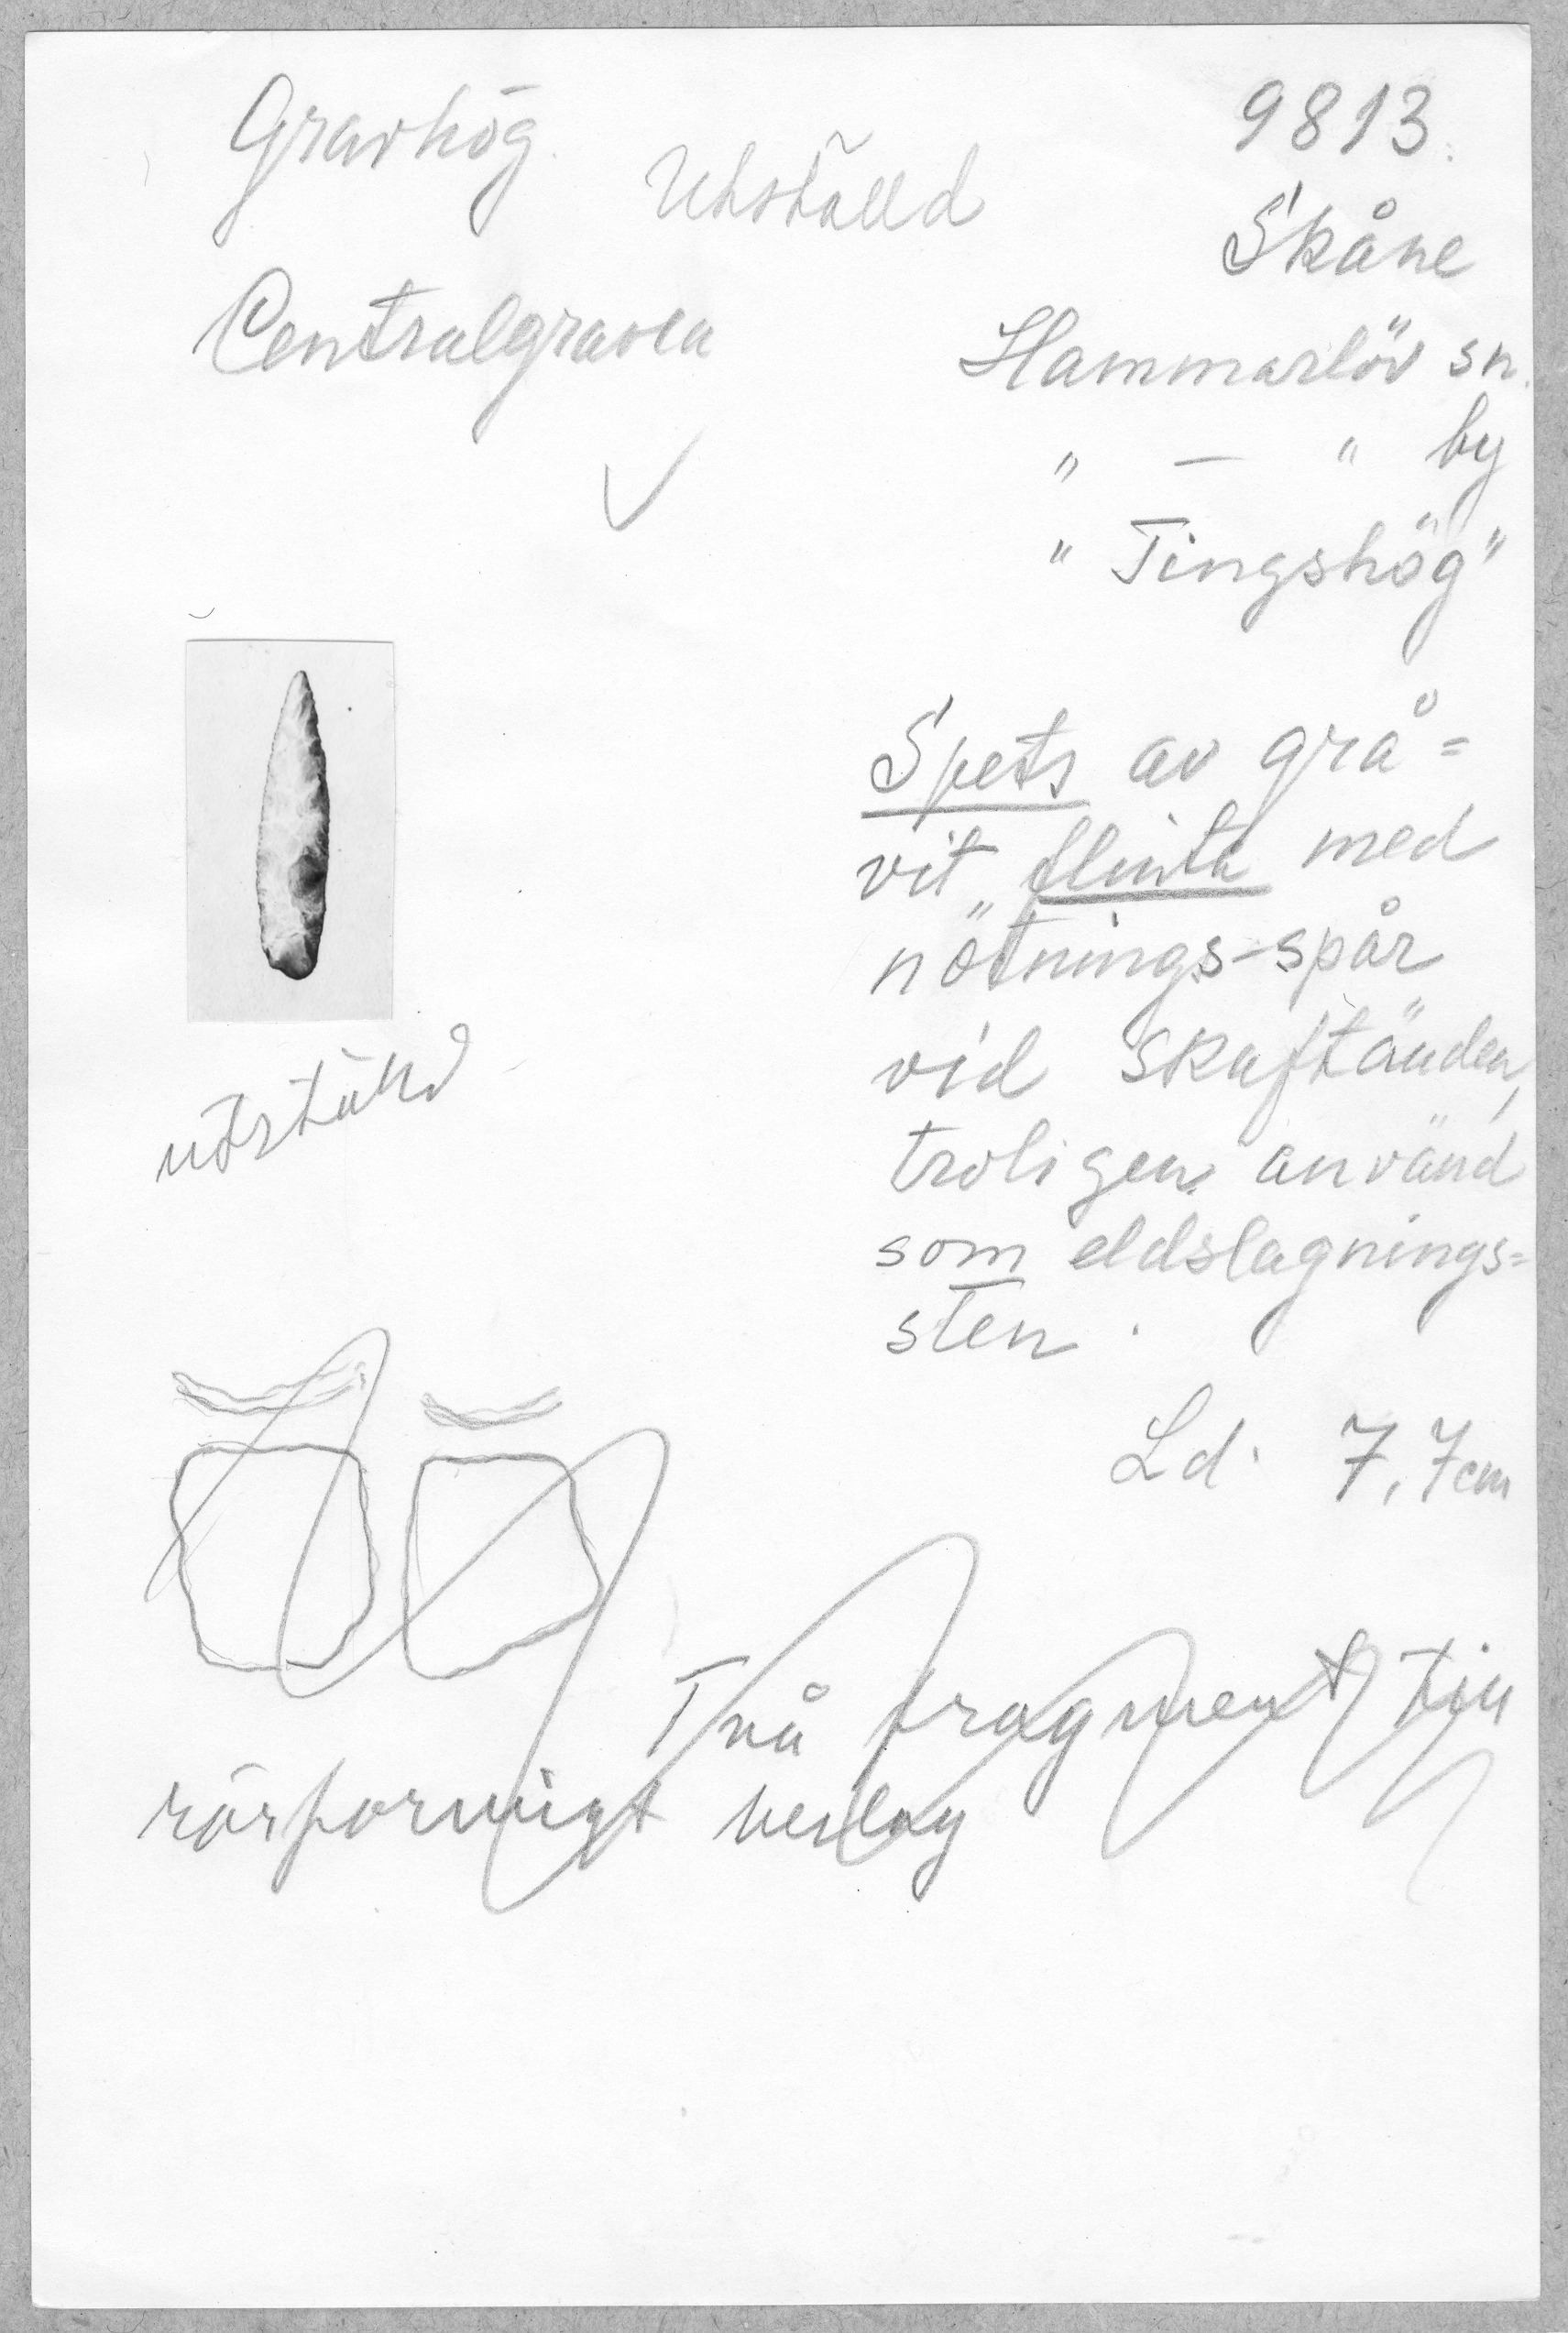 Gravhög.
Utställd
Centralgraven
9813.
Skåne
Hammarlöv sn.
" — " by
"Tingshög"
Spets av grå=
vit flinta med
nötnings-spår
vid skaftänden,
troligen använd
som eldslagnings=
sten.
Ld. 7,7cm
utställd
Två fragment
rörformigt